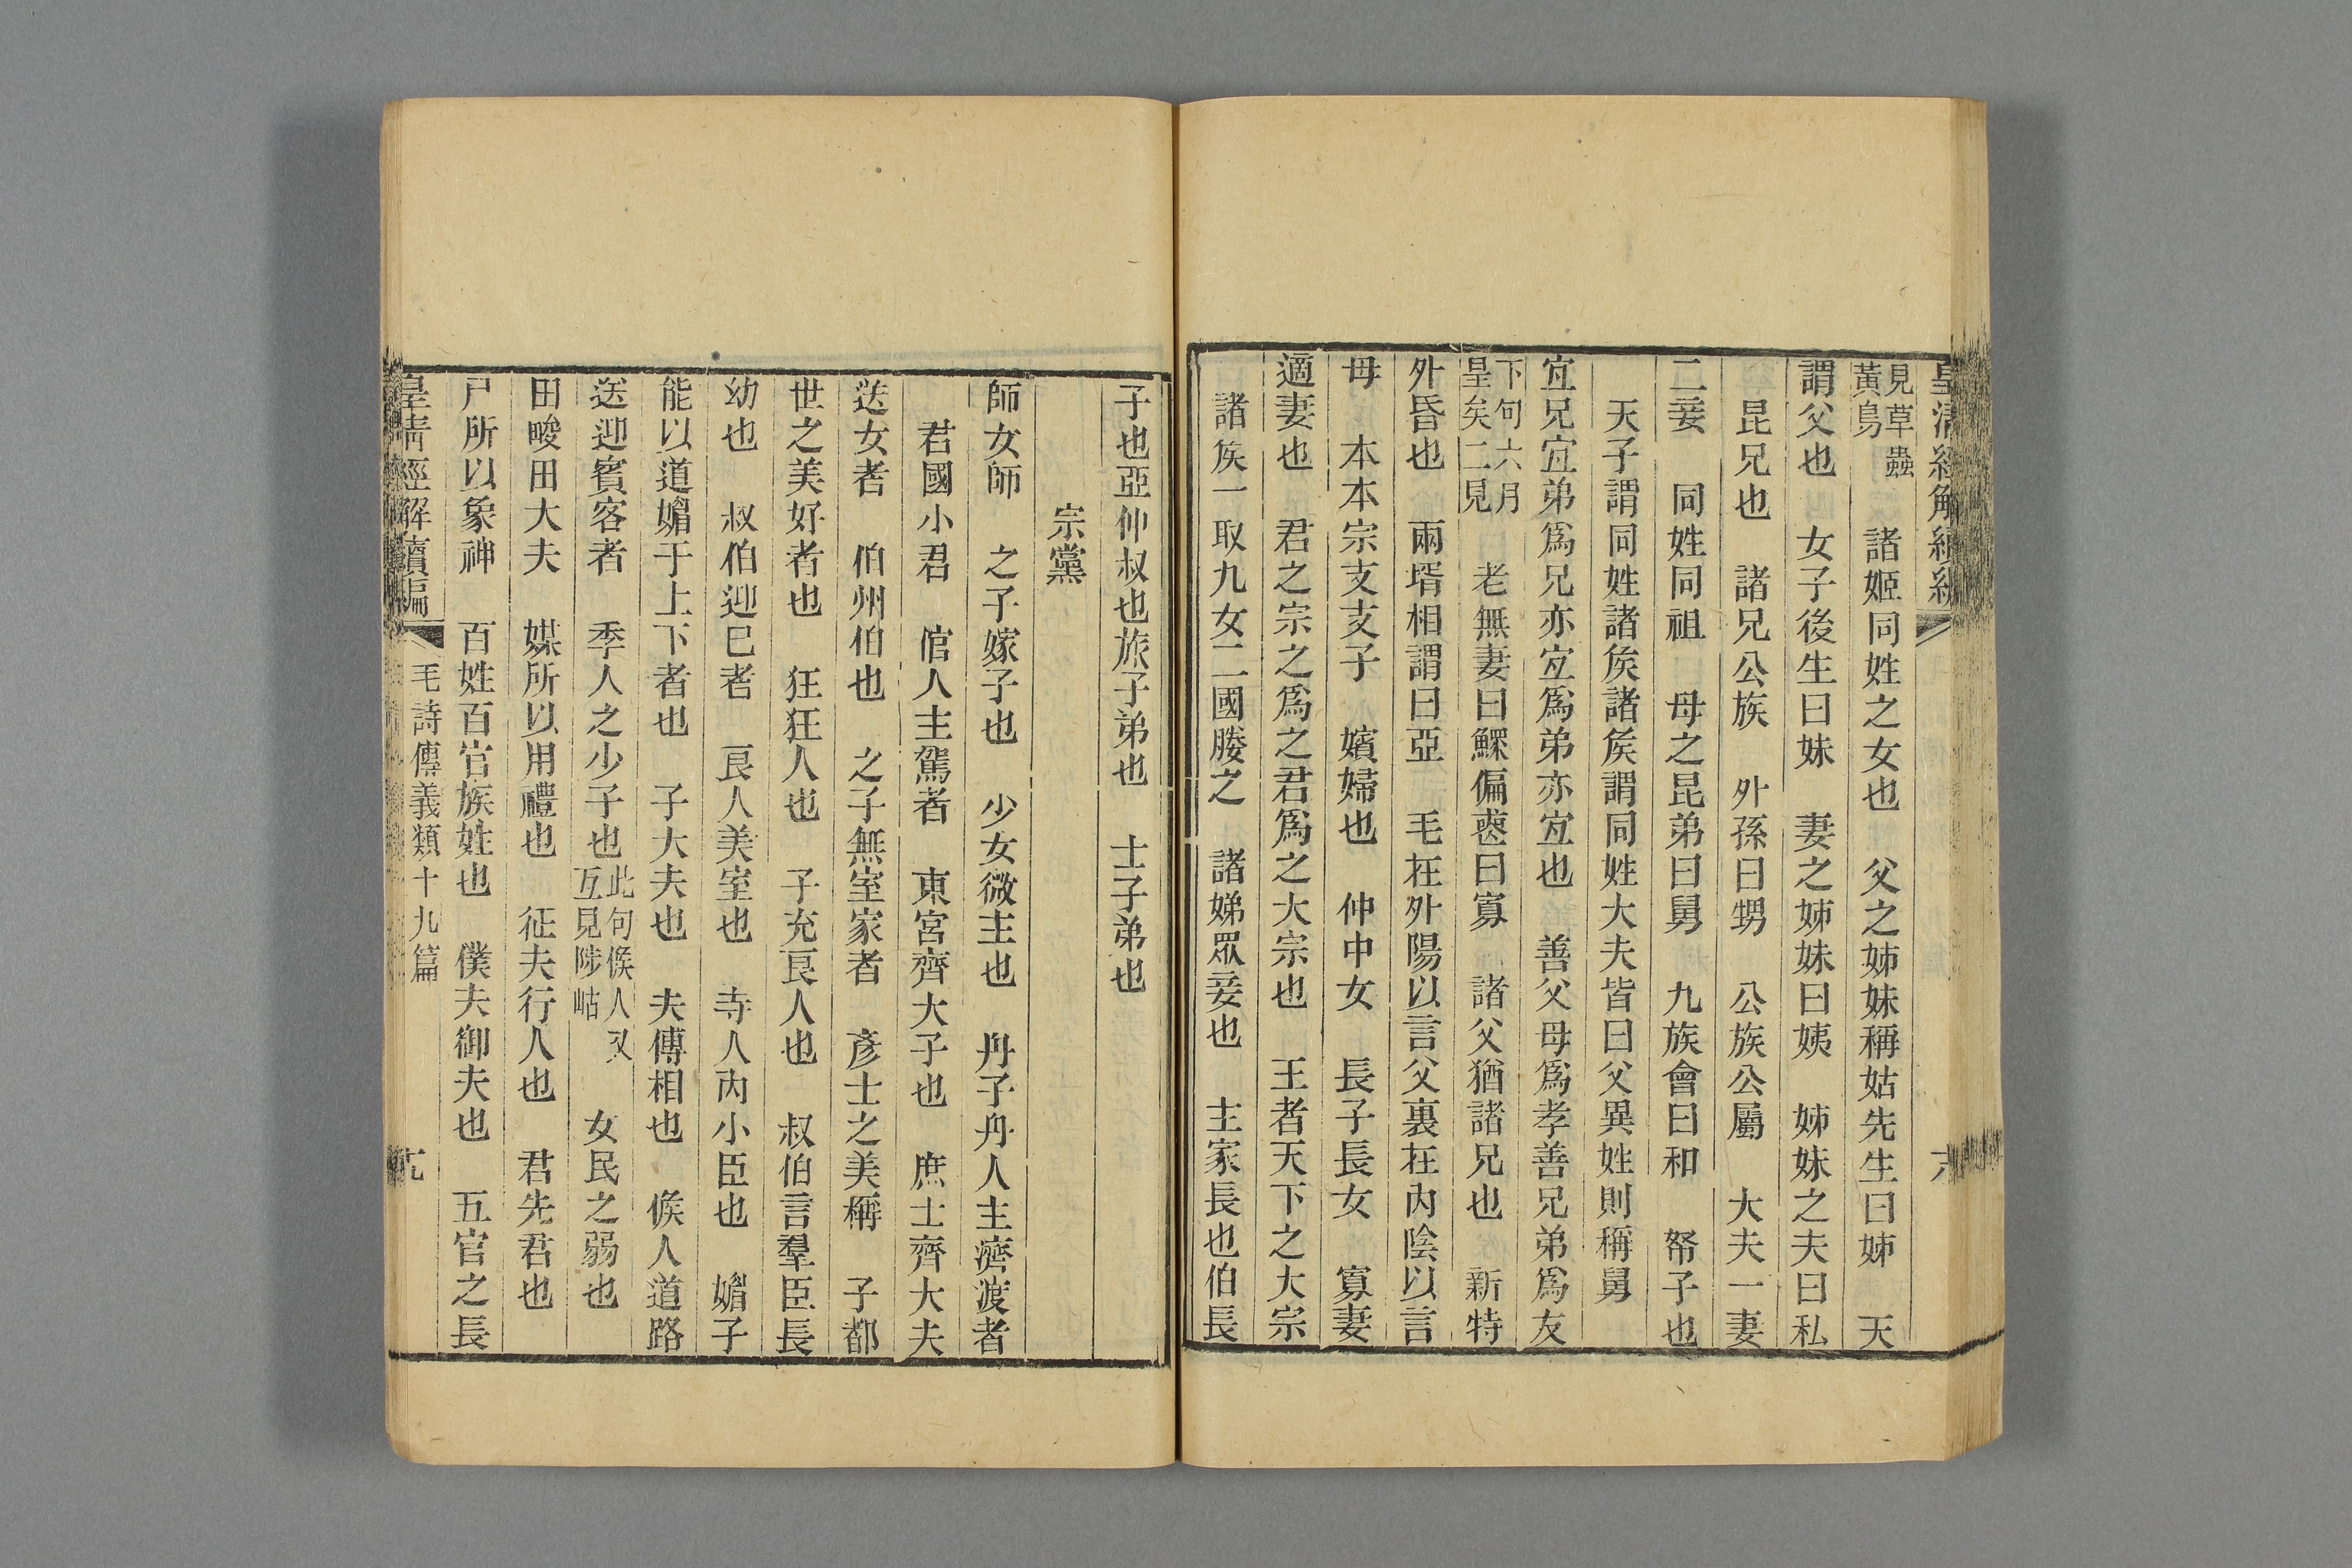 見草蟲
黃鳥
諸姬同姓之女也　父之姊妹稱姑先生曰姊　天
謂父也　女子後生曰妹　妻之姊妹曰姨　姊妹之夫曰私
昆兄也　諸兄公族　外孫曰甥　公族公屬　大夫一妻
二妾　同姓同祖　母之昆弟曰舅　九族會曰和　帑子也
天子謂同姓諸矦諸矦謂同姓大夫皆曰父異姓則稱舅
宐兄宐弟爲兄亦宐爲弟亦宐也　善父母爲孝善兄弟爲友
下句六月
皇矣二見
老無妻曰鰥偏喪曰寡　諸父猶諸兄也　新特
外昏也　兩壻相謂曰亞　毛在外陽以言父裏在內陰以言
母　本本宗支支子　嬪婦也　仲中女　長子長女　寡妻
適妻也　君之宗之爲之君爲之大宗也　王者天下之大宗
諸矦一取九女二國媵之　諸娣眾妾也　主家長也伯長
子也亞仲叔也旅子弟也　士子弟也
宗黨
師女師　之子嫁子也　少女微主也　舟子舟人主濟渡者
君國小君　倌人主駕者　東宮齊大子也　庶士齊大夫
送女者　伯州伯也　之子無室家者　彥士之美稱　子都
世之美好者也　狂狂人也　子充良人也　叔伯言羣臣長
幼也　叔伯迎已者　良人美室也　寺人內小臣也　媚子
能以道媚于上下者也　子大夫也　夫傅相也　候人道路
送迎賓客者　季人之少子也
此句候人又
互見陟岵
女民之弱也
田畯田大夫　媒所以用禮也　征夫行人也　君先君也
尸所以象神　百姓百官族姓也　僕夫御夫也　五官之長
皇清經解續編　毛詩傳義類十九篇